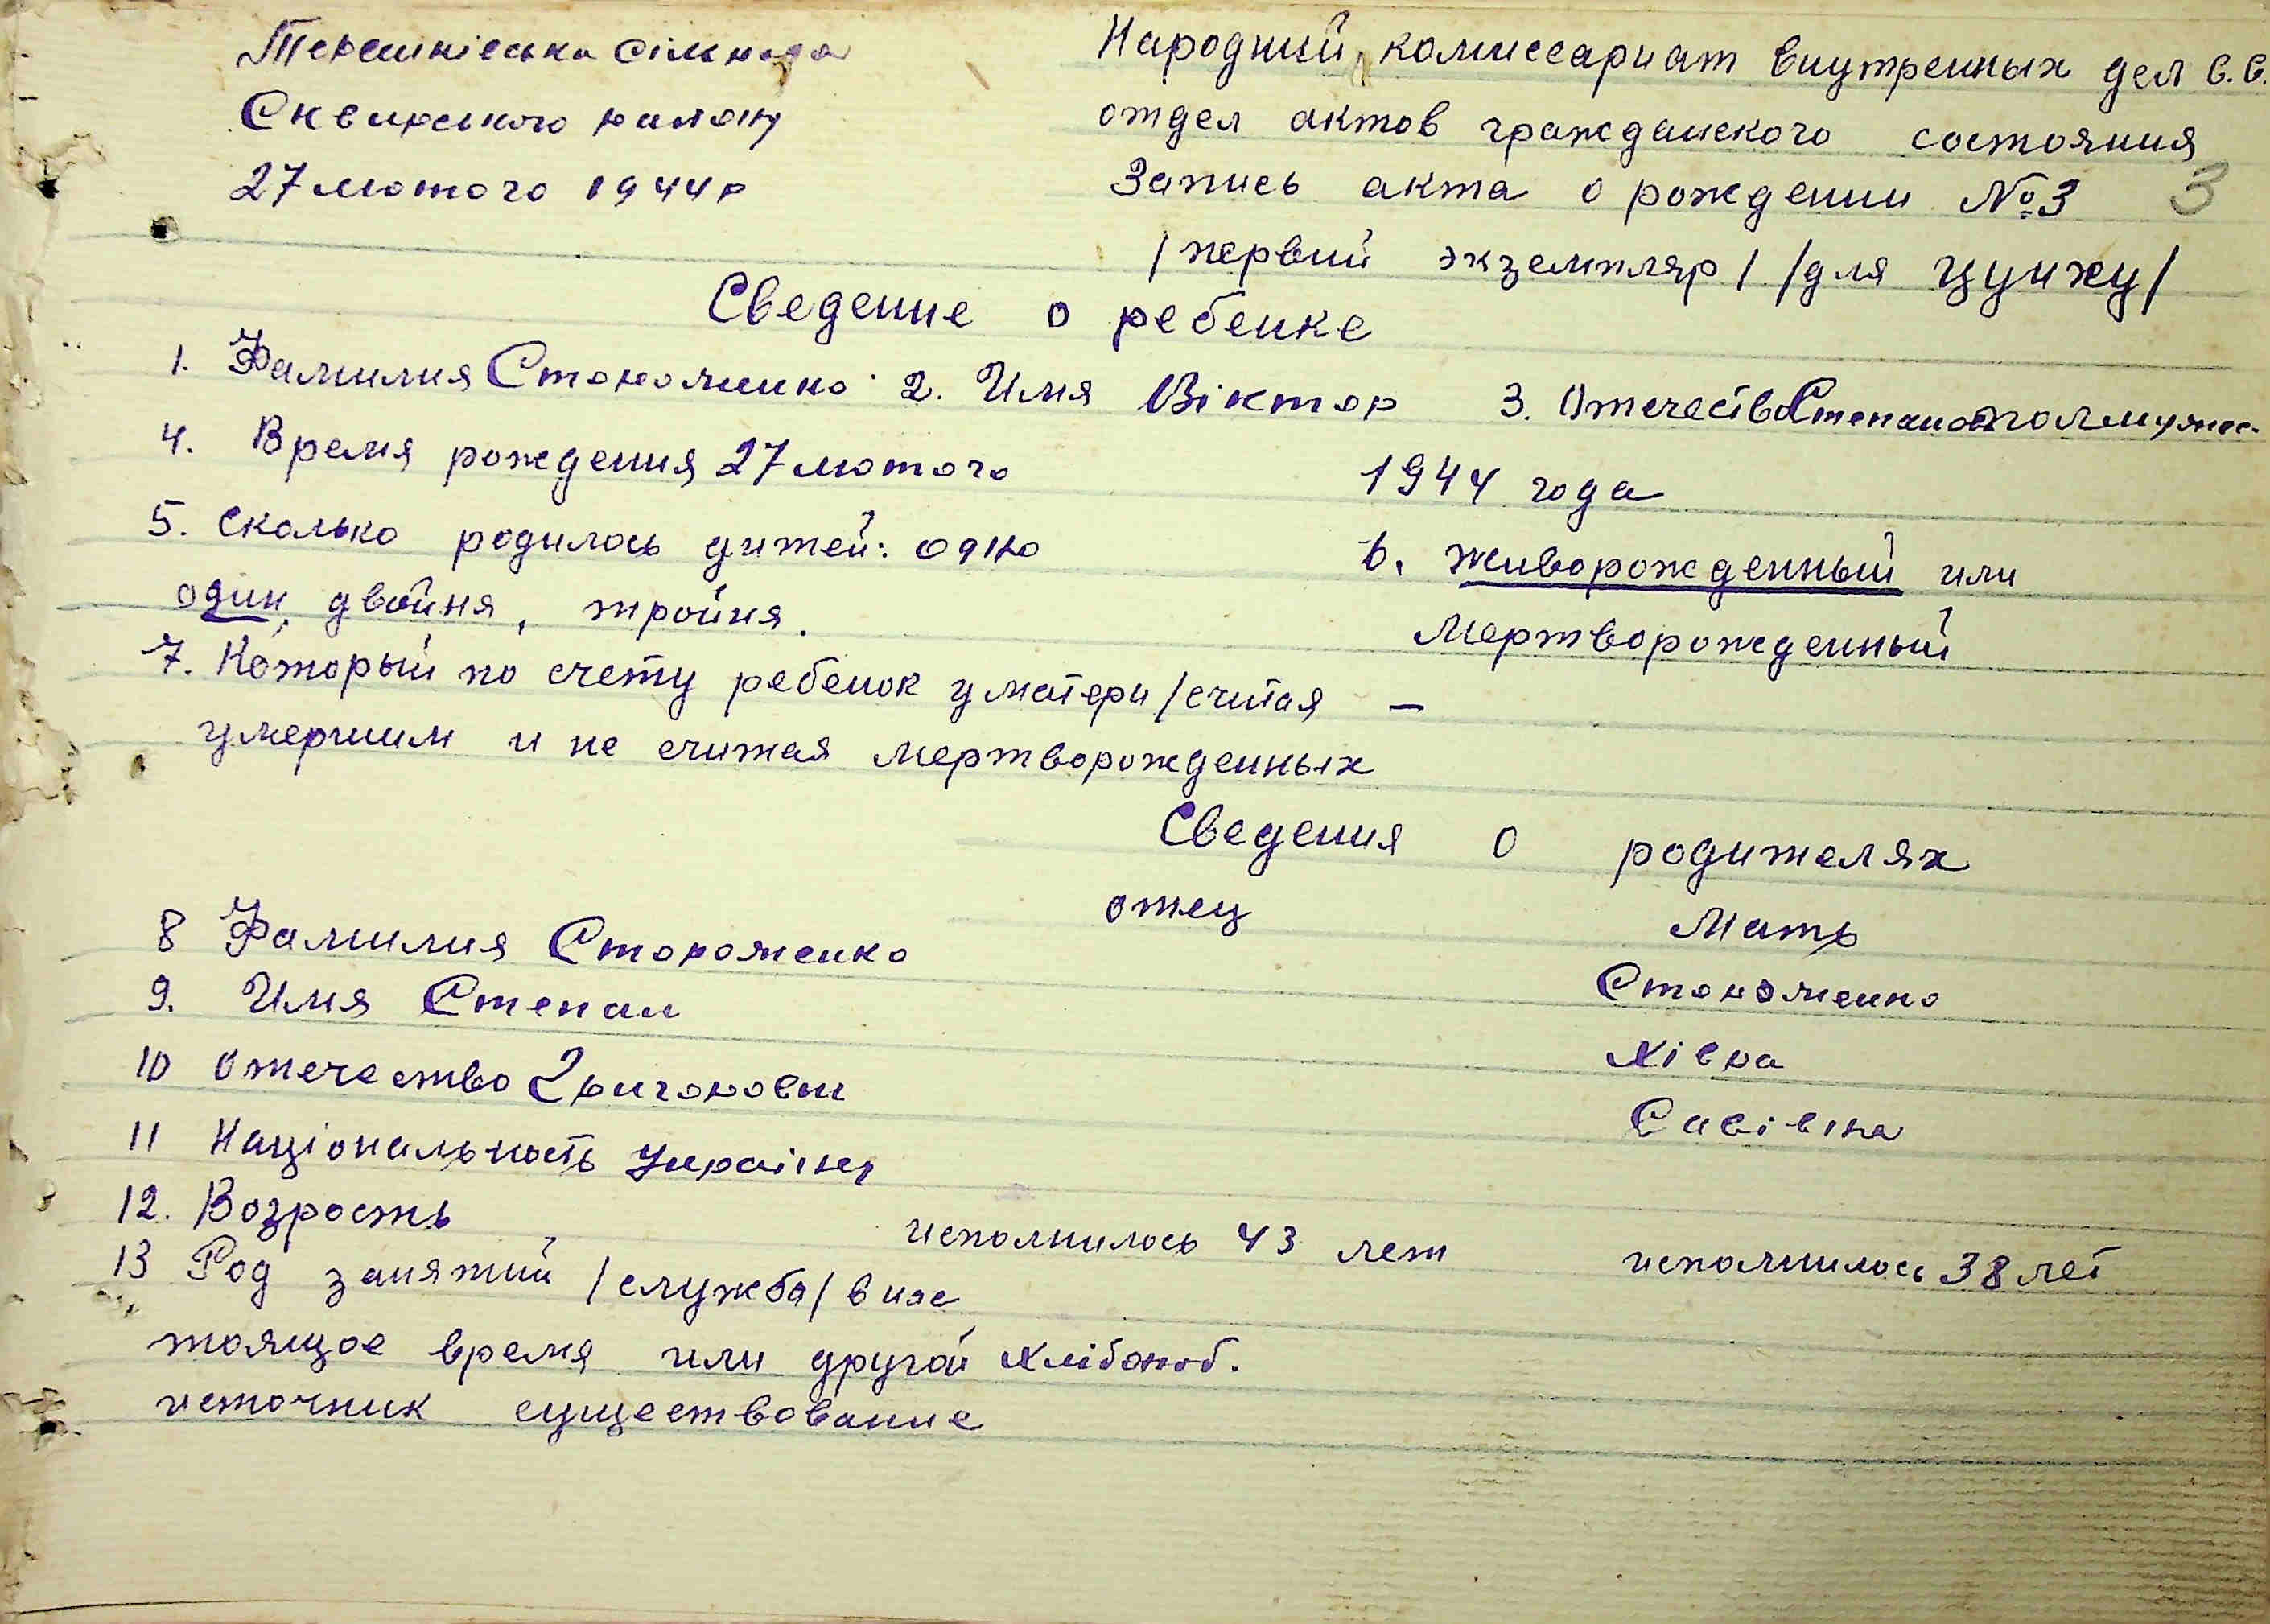 Терешківська сільрада
Сквирського району
27 лютого 1944 р
Народний комиссариат внутренных дел С.С.
отдел актов гражданского состояния
Запись акта о рождении №3 3
/первий экземпляр/ /для цунху/
Сведение о ребенке
1. Фамилия Стороженко 2. Имя Віктор 3. Отечество Степанов пол мужес.
4. Время рождения 27 лютого 1944 года
5. Сколько родилось дитей: одно 6. Живорожденный или
один, двойня, тройня. Мертворожденный
7. Который по счету ребенок у матери /считая —
умершим и не считая мертворожденных
Сведения о родителях
отец Мать
8 Фамилия Стороженко Стороженко
9. Имя Степан Хівра
10 Отечество Григорович Савівна
11 Національность Украінці
12. Возрость исполнилось 43 лет исполнилось 38 лет
13 Род занятий /служба/ в нас
тоящое время или другой хлібороб.
источник существование